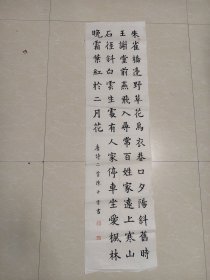 朱雀橋邊野草花烏衣巷口夕陽斜舊時
王謝堂前燕飛入尋常百姓家遠上寒山
石徑斜白雲生處有人家停車坐愛楓林
晚霜葉紅於二月花
唐詩二首